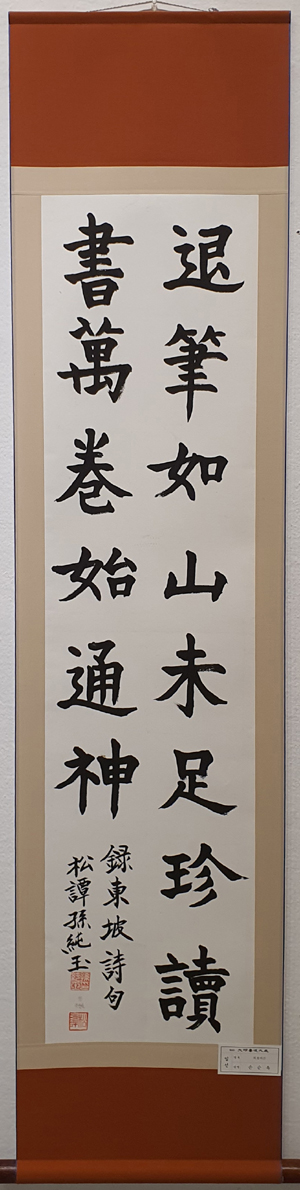 退筆如山未足珍讀
書萬卷始通神
録東坡詩句
松譚孫純玉